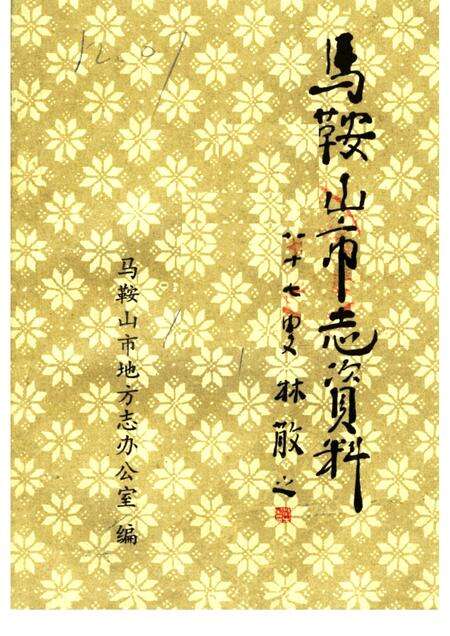 马鞍山市志资料
八十七叟 林散之
马鞍山市地方志办公室 编